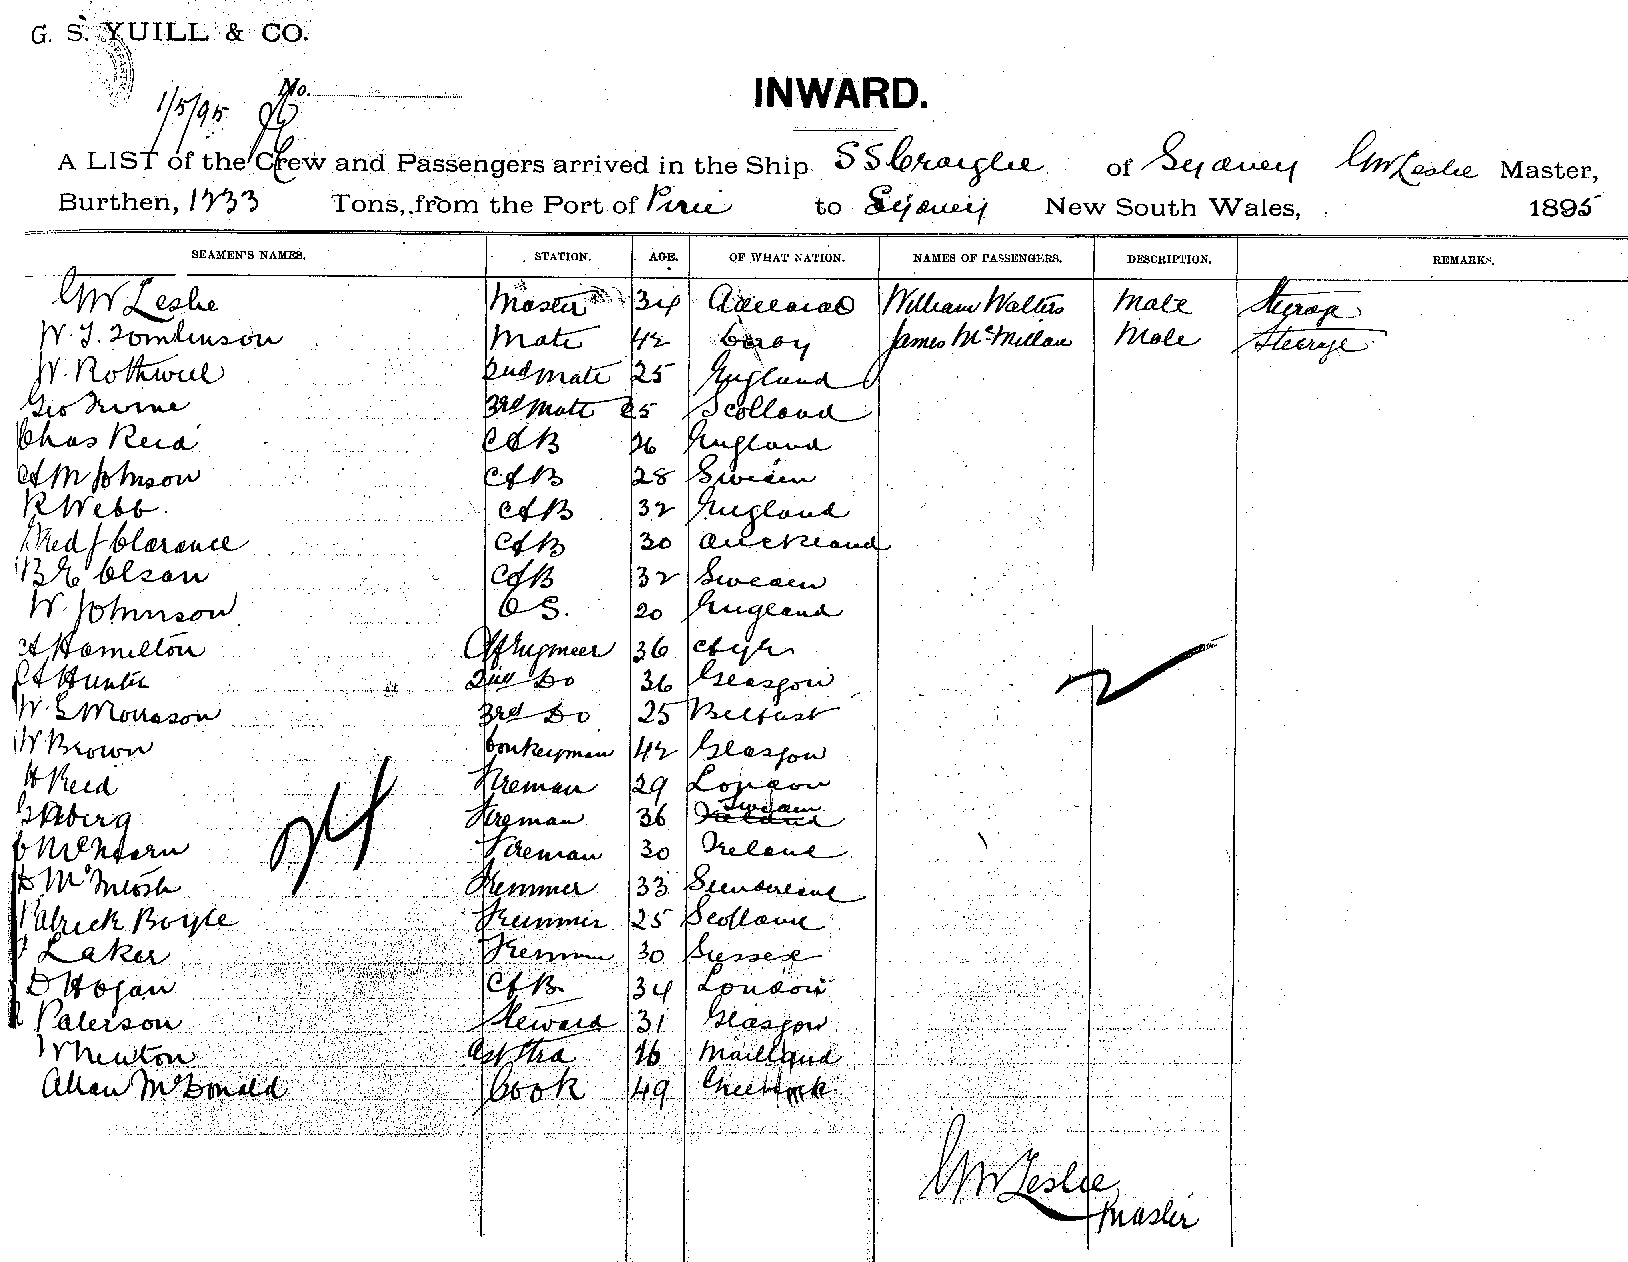 G. S. YUILL & CO.
1/5/95 No.
INWARD.
A LIST of the Crew and Passengers arrived in the Ship S S Craiglee of Sydney GW Leslie Master,
Burthen, 1233 Tons, from the Port of Pirie to Sydney New South Wales, 1895
SEAMEN'S NAMES. STATION. AGE. OF WHAT NATION. NAMES OF PASSENGERS. DESCRIPTION. REMARKS.
GW Leslie Master 34 William Walters Male Steerage
W. J. Tomlinson Mate 42 James McMillan Male Steerage
W. Rothwell 2nd Mate 25 England
Geo Irvine 3rd Mate 25 Scotland
Chas Reid AB 26 England
A M Johnson AB 28 Sweden
R Webb. AB 32 England
Fred J Clarance AB 30 Auckland
B E Olsan AB 32 Sweden
W. Johnson O S. 20 England
A Hamilton Engineer 36 Ayr
A Hunter 2nd Do 36 Glasgow
W. S Morrason 3rd Do 25 Belfast
W Brown Donkeyman 42 Glasgow
H Reid Fireman 29 London
Fireman 36 Sweden Ireland
Fireman 30 Ireland
D McIntosh Trimmer 33 Sunderland
Patrick Boyle Trimmer 25 Scotland
Laker Trimmer 30 Sussex
D Hogan AB 34 London
Paterson Steward 31 Glasgow
W Newton 16 Maitland
Allan McDonald Cook 49 Greenock
24
2
GW Leslie
Master